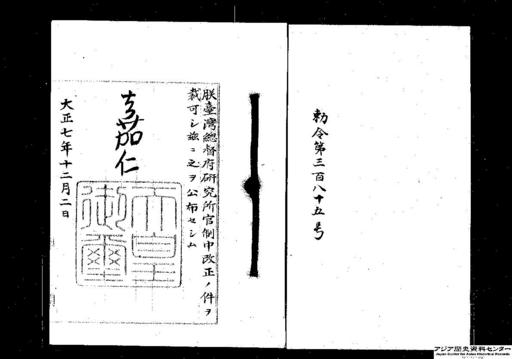 勅令第三百八十五号
朕臺灣總督府研究所官制中改正ノ件ヲ
裁可シ茲ニ之ヲ公布セシム
嘉仁
天皇
御璽
大正七年十二月二日
アジア歴史資料センター
Japan Center for Asian Historical Records